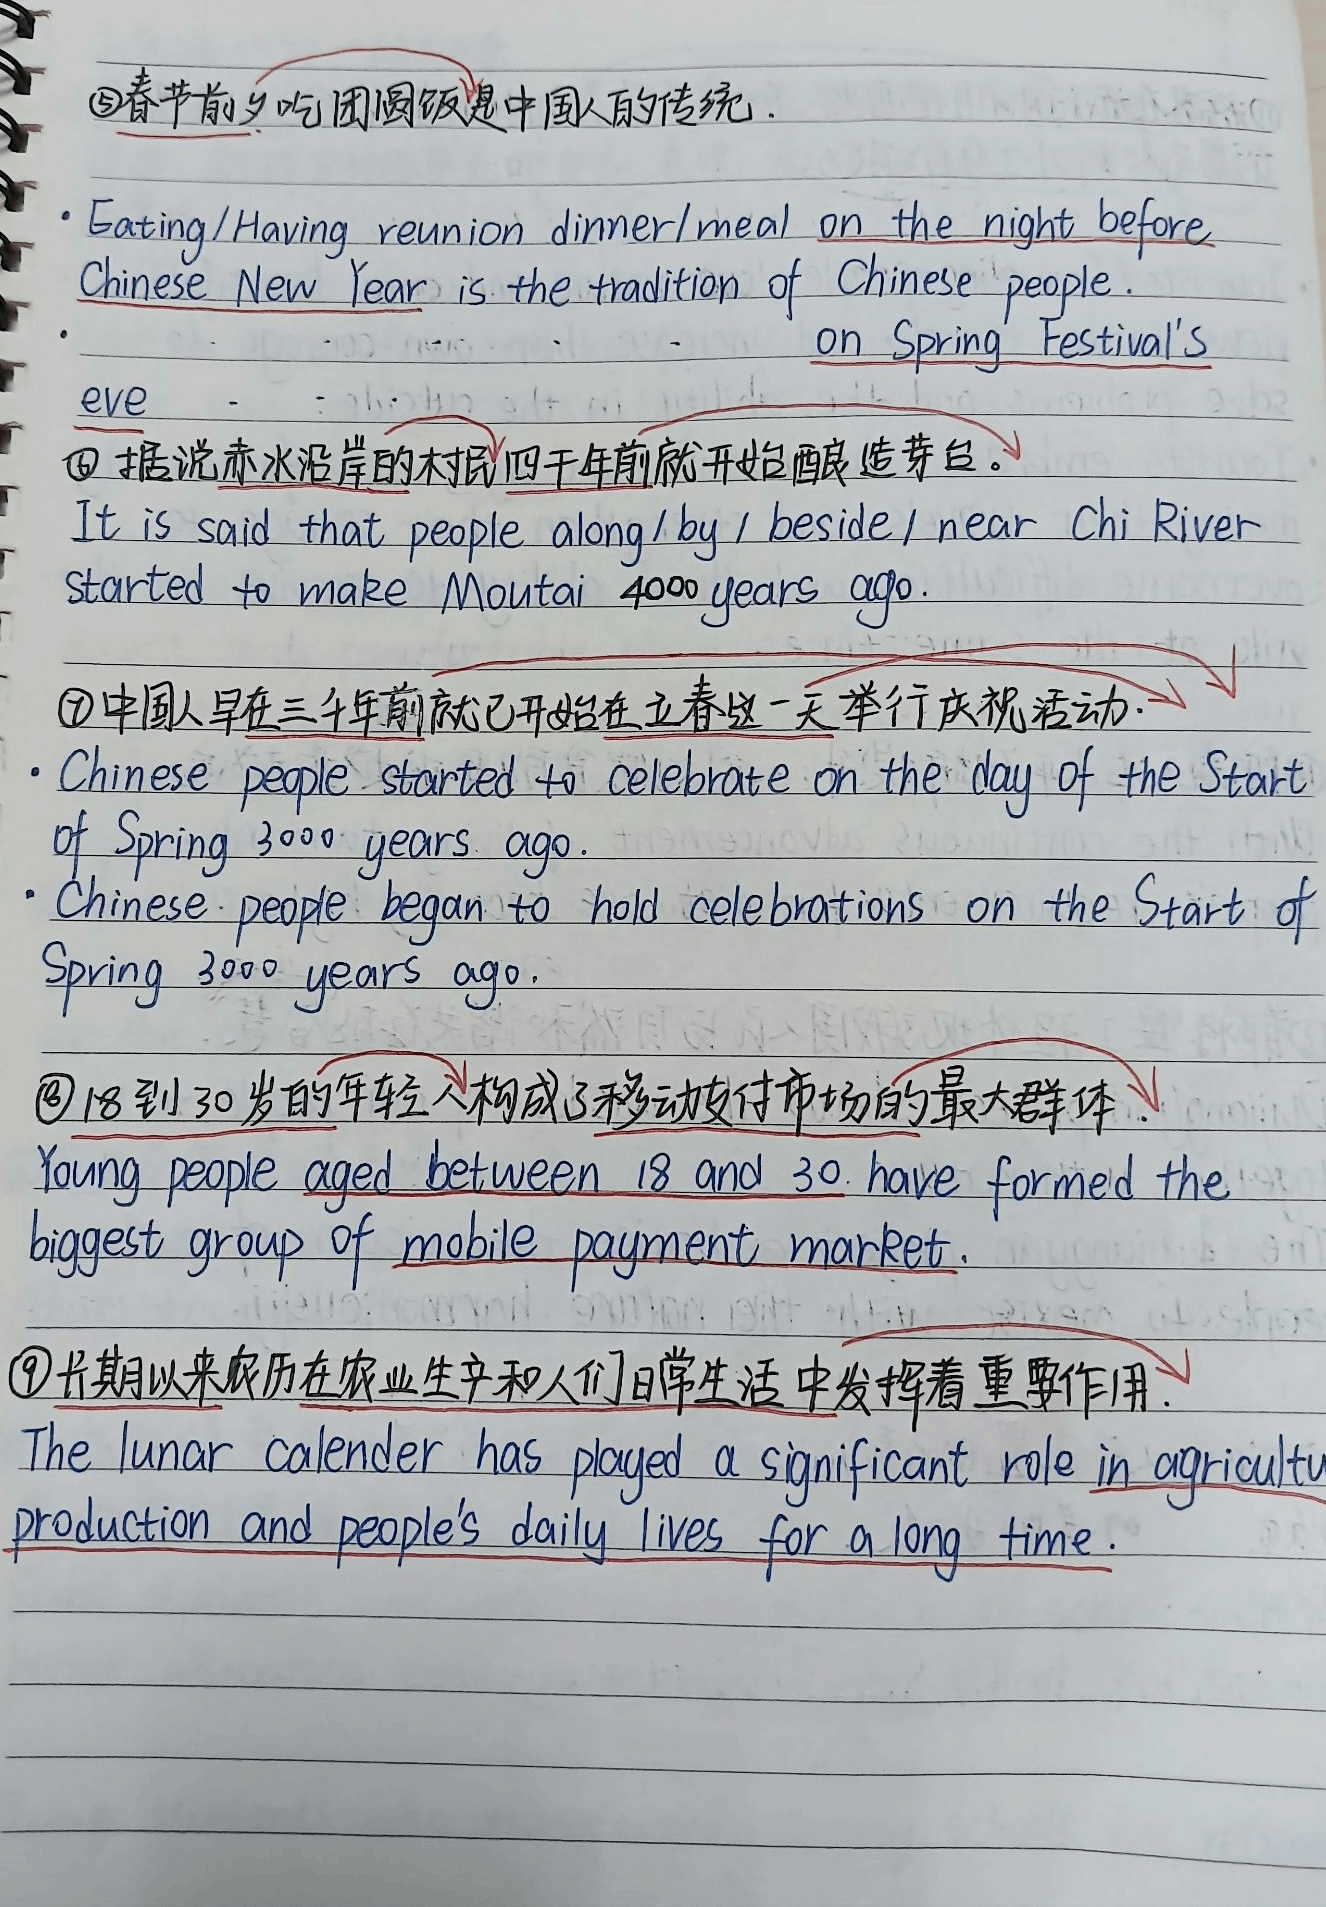 ⑤春节前夕吃团圆饭是中国人的传统.
· Eating/Having reunion dinner/meal on the night before
Chinese New Year is the tradition of Chinese people.
· on Spring Festival's
eve
⑥据说赤水沿岸的村民四千年前就开始酿造芽台。
It is said that people along/by/beside/near Chi River
started to make Moutai 4000 years ago.
⑦中国人早在三千年前就已开始在立春这一天举行庆祝活动.
· Chinese people started to celebrate on the day of the Start
of Spring 3000 years ago.
· Chinese people began to hold celebrations on the Start of
Spring 3000 years ago.
⑧18到30岁的年轻人构成了移动支付市场的最大群体.
Young people aged between 18 and 30 have formed the
biggest group of mobile payment market.
⑨长期以来农历在农业生产和人们日常生活中发挥着重要作用.
The lunar calender has played a significant role in agricultu
production and people's daily lives for a long time.